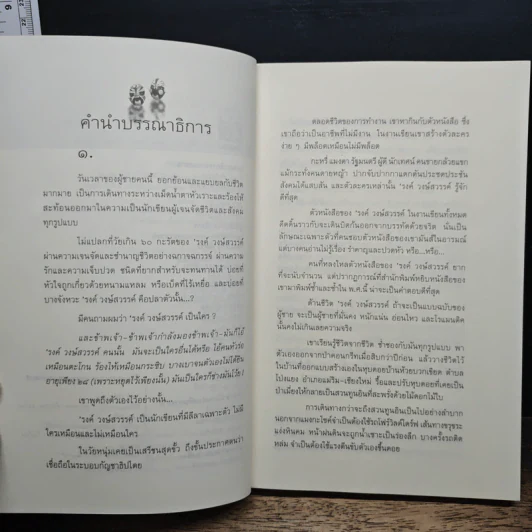 คำนำบรรณาธิการ
๑.
วันเวลาของผู้ชายคนนี้ ยอกย้อนและแยบยลกับชีวิต
มากมาย เป็นการเดินทางระหว่างเม็ดน้ำตาหัวเราะและร้องไห้
สะท้อนออกมาในความเป็นนักเขียนผู้เจนจัดชีวิตและสังคม
ทุกรูปแบบ
ไม่แปลกที่วัยเกิน ๖๐ กะรัตของ 'รงค์ วงษ์สวรรค์
ผ่านความเจนจัดและชำนาญชีวิตอย่างฉกาจฉกรรจ์ ผ่านความ
รักและความเจ็บปวด ชนิดที่ยากสำหรับจะทนทานได้ บ่อยที่
หัวใจถูกเกี่ยวด้วยหนามแหลม หรือเบ็ดที่ไร้เหยื่อ และบ่อยที่
บางจังหวะ 'รงค์ วงษ์สวรรค์ คือปลาตัวนั้น...?
มีคนถามผมว่า 'รงค์ วงษ์สวรรค์ เป็นใคร ?
และข้าพเจ้า-ข้าพเจ้ากำลังมองข้าพเจ้า-มันก็ไอ้
'รงค์ วงษ์สวรรค์ คนนั้น มันจะเป็นใครอื่นได้หรือ ไอ้คนหัวร่อ
เหมือนตะโกน ร้องไห้เหมือนกระซิบ บางเบาจนตัวเองไม่ได้ยิน
อายุเพียง ๒๘ (เพราะหยุดไว้เพียงนั้น) มันเป็นใครก็ช่างมันไว้ย !
เขาพูดถึงตัวเองไว้อย่างนั้น...
'รงค์ วงษ์สวรรค์ เป็นนักเขียนที่มีลีลาเฉพาะตัว ไม่มี
ใครเหมือนและไม่เหมือนใคร
ในวัยหนุ่มเคยเป็นเสรีชนสุดขั้ว ถึงขั้นประกาศตนว่า
เชื่อถือในระบอบกัญชาธิปไตย
ตลอดชีวิตของการทำงาน เขาหากินกับตัวหนังสือ ซึ่ง
เขาถือว่าเป็นอาชีพที่ไม่มีงาน ในงานเขียนเขาสร้างตัวละคร
ง่าย ๆ มีพล็อตเหมือนไม่มีพล็อต
กะหรี่ แมงดา รัฐมนตรี ผู้ดี นักเทศน์ คนขายกล้วยแขก
แม้กระทั่งคนตายหญ้า ปากจัดปากกาแดกดันประชดประชัน
สังคมได้แสบสัน และตัวละครเหล่านั้น 'รงค์ วงษ์สวรรค์ รู้จัก
ดีที่สุด
ตัวหนังสือของ 'รงค์ วงษ์สวรรค์ ในงานเขียนทั้งหมด
ดีดดิ้นราวกับจะเดินบิดก้นออกจากบรรทัดด้วยจริต นั่นเป็น
ลักษณะเฉพาะตัวที่คนชอบตัวหนังสือของเขามันส์ในอารมณ์
แต่บางคนอ่านไม่รู้เรื่อง รำคาญและปวดหัว หรือ...หรือ...
คนที่หลงใหลตัวหนังสือของ 'รงค์ วงษ์สวรรค์ ยาก
ที่จะนับจำนวน แต่ปรากฏการณ์ที่สำนักพิมพ์หยิบหนังสือของ
เขามาพิมพ์ซ้ำและซ้ำใน พ.ศ.นี้ น่าจะเป็นคำตอบดีที่สุด
ด้านชีวิต 'รงค์ วงษ์สวรรค์ ถ้าจะเป็นแบบฉบับของ
ผู้ชาย จะเป็นผู้ชายที่มั่นคง หนักแน่น อ่อนไหว และโรแมนติค
นั่นคงไม่เกินเลยความจริง
เขาเรียนรู้ชีวิตจากชีวิต ช่ำชองกับมันทุกรูปแบบ พา
ตัวเองออกจากป่าคอนกรีทเมื่อสิบกว่าปีก่อน แล้ววางชีวิตไว้
ในบ้านที่ออกแบบสร้างเองในหุบดอยบ้านห้วยบวกเขียด ตำบล
โป่งแยง อำเภอแม่ริม-เชียงใหม่ ซื้อและปรับหุบดอยที่เคยเป็น
ป่าเมี่ยงให้กลายเป็นสวนทูนอินที่สะพรั่งด้วยไม้ดอกไม้ใบ
การเดินทางกว่าจะถึงสวนทูนอินเป็นไปอย่างลำบาก
นอกจากแมงกะไซค์จำเป็นต้องใช้รถโฟร์วีลด์ไดร์ฟ เส้นทางขรุขระ
แง่งหินคม หน้าฝนดินจะถูกน้ำเซาะเป็นร่องลึก บางครั้งรถติด
หล่ม จำเป็นต้องใช้แรงดันขับตัวเองขึ้นดอย